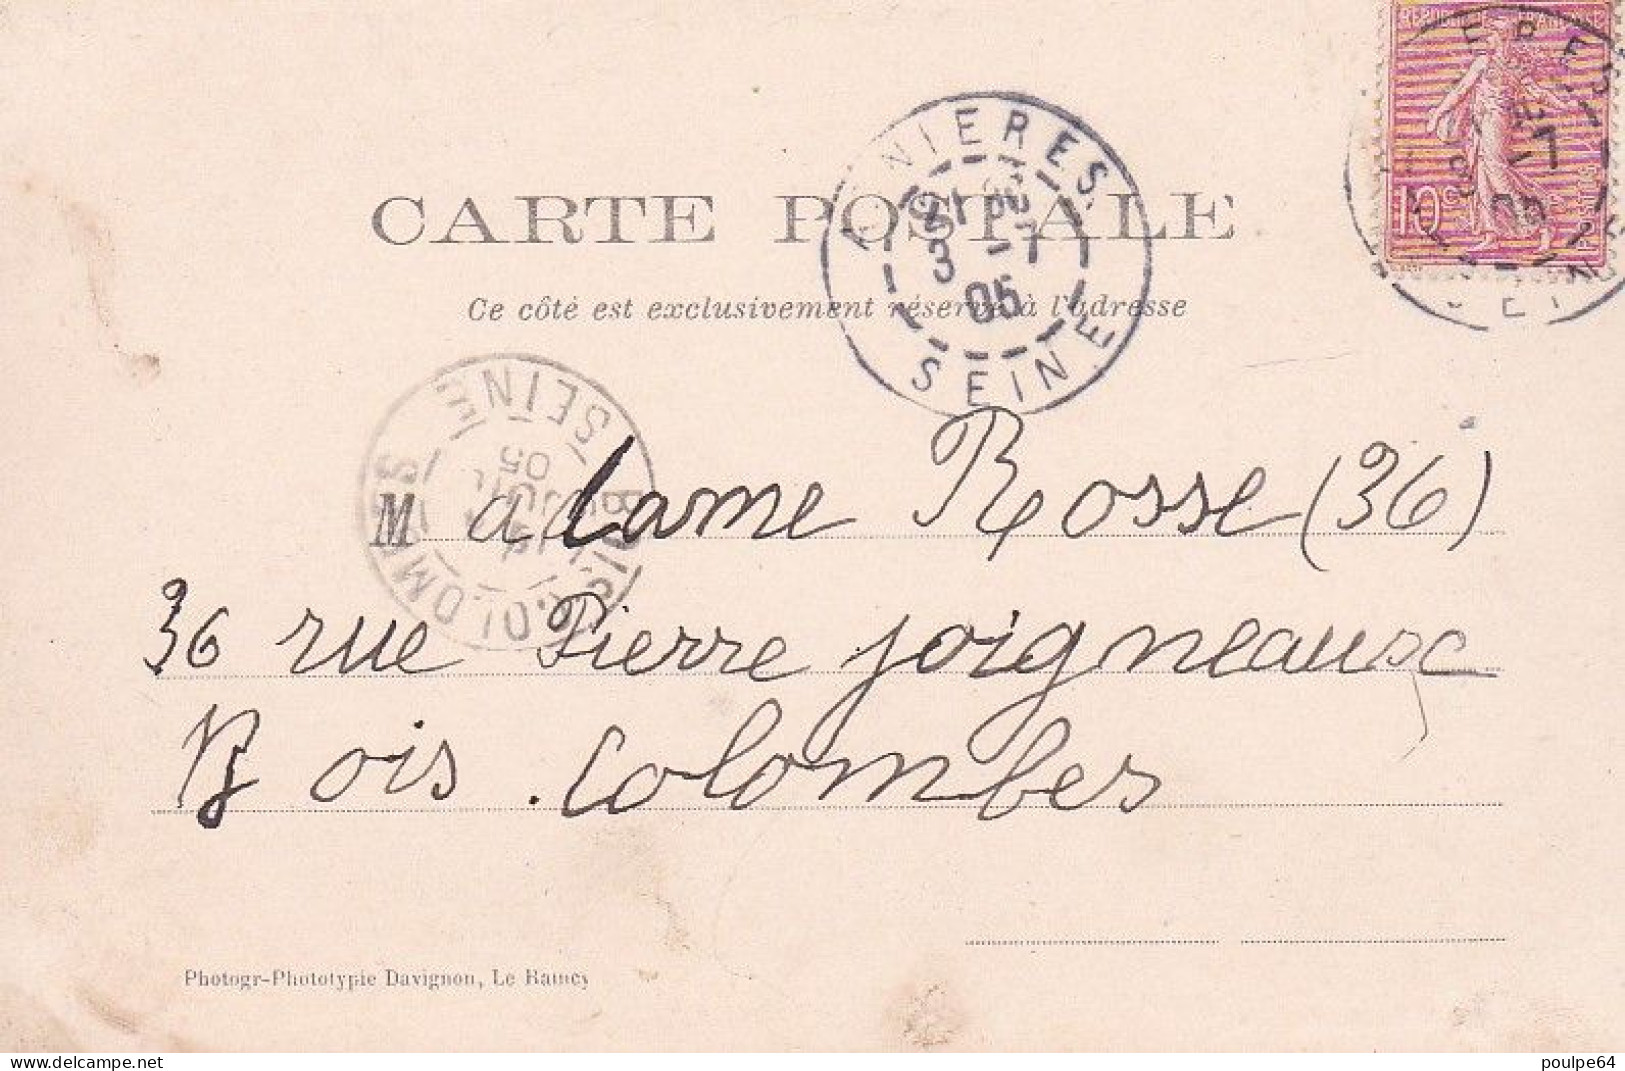 REPUBLIQUE FRANÇAISE
10c
POSTES
ASNIERES
21 30
3 -7
05
SEINE
CARTE POSTALE
Ce côté est exclusivement réservé à l'adresse
BOIS COLOMBES
4
JUIL
05
SEINE
Madame Rosse (36)
36 rue Pierre joigneaux
Bois.Colombes
Photogr-Phototypie Davignon, Le Raincy
delcampe.net
poulpe64